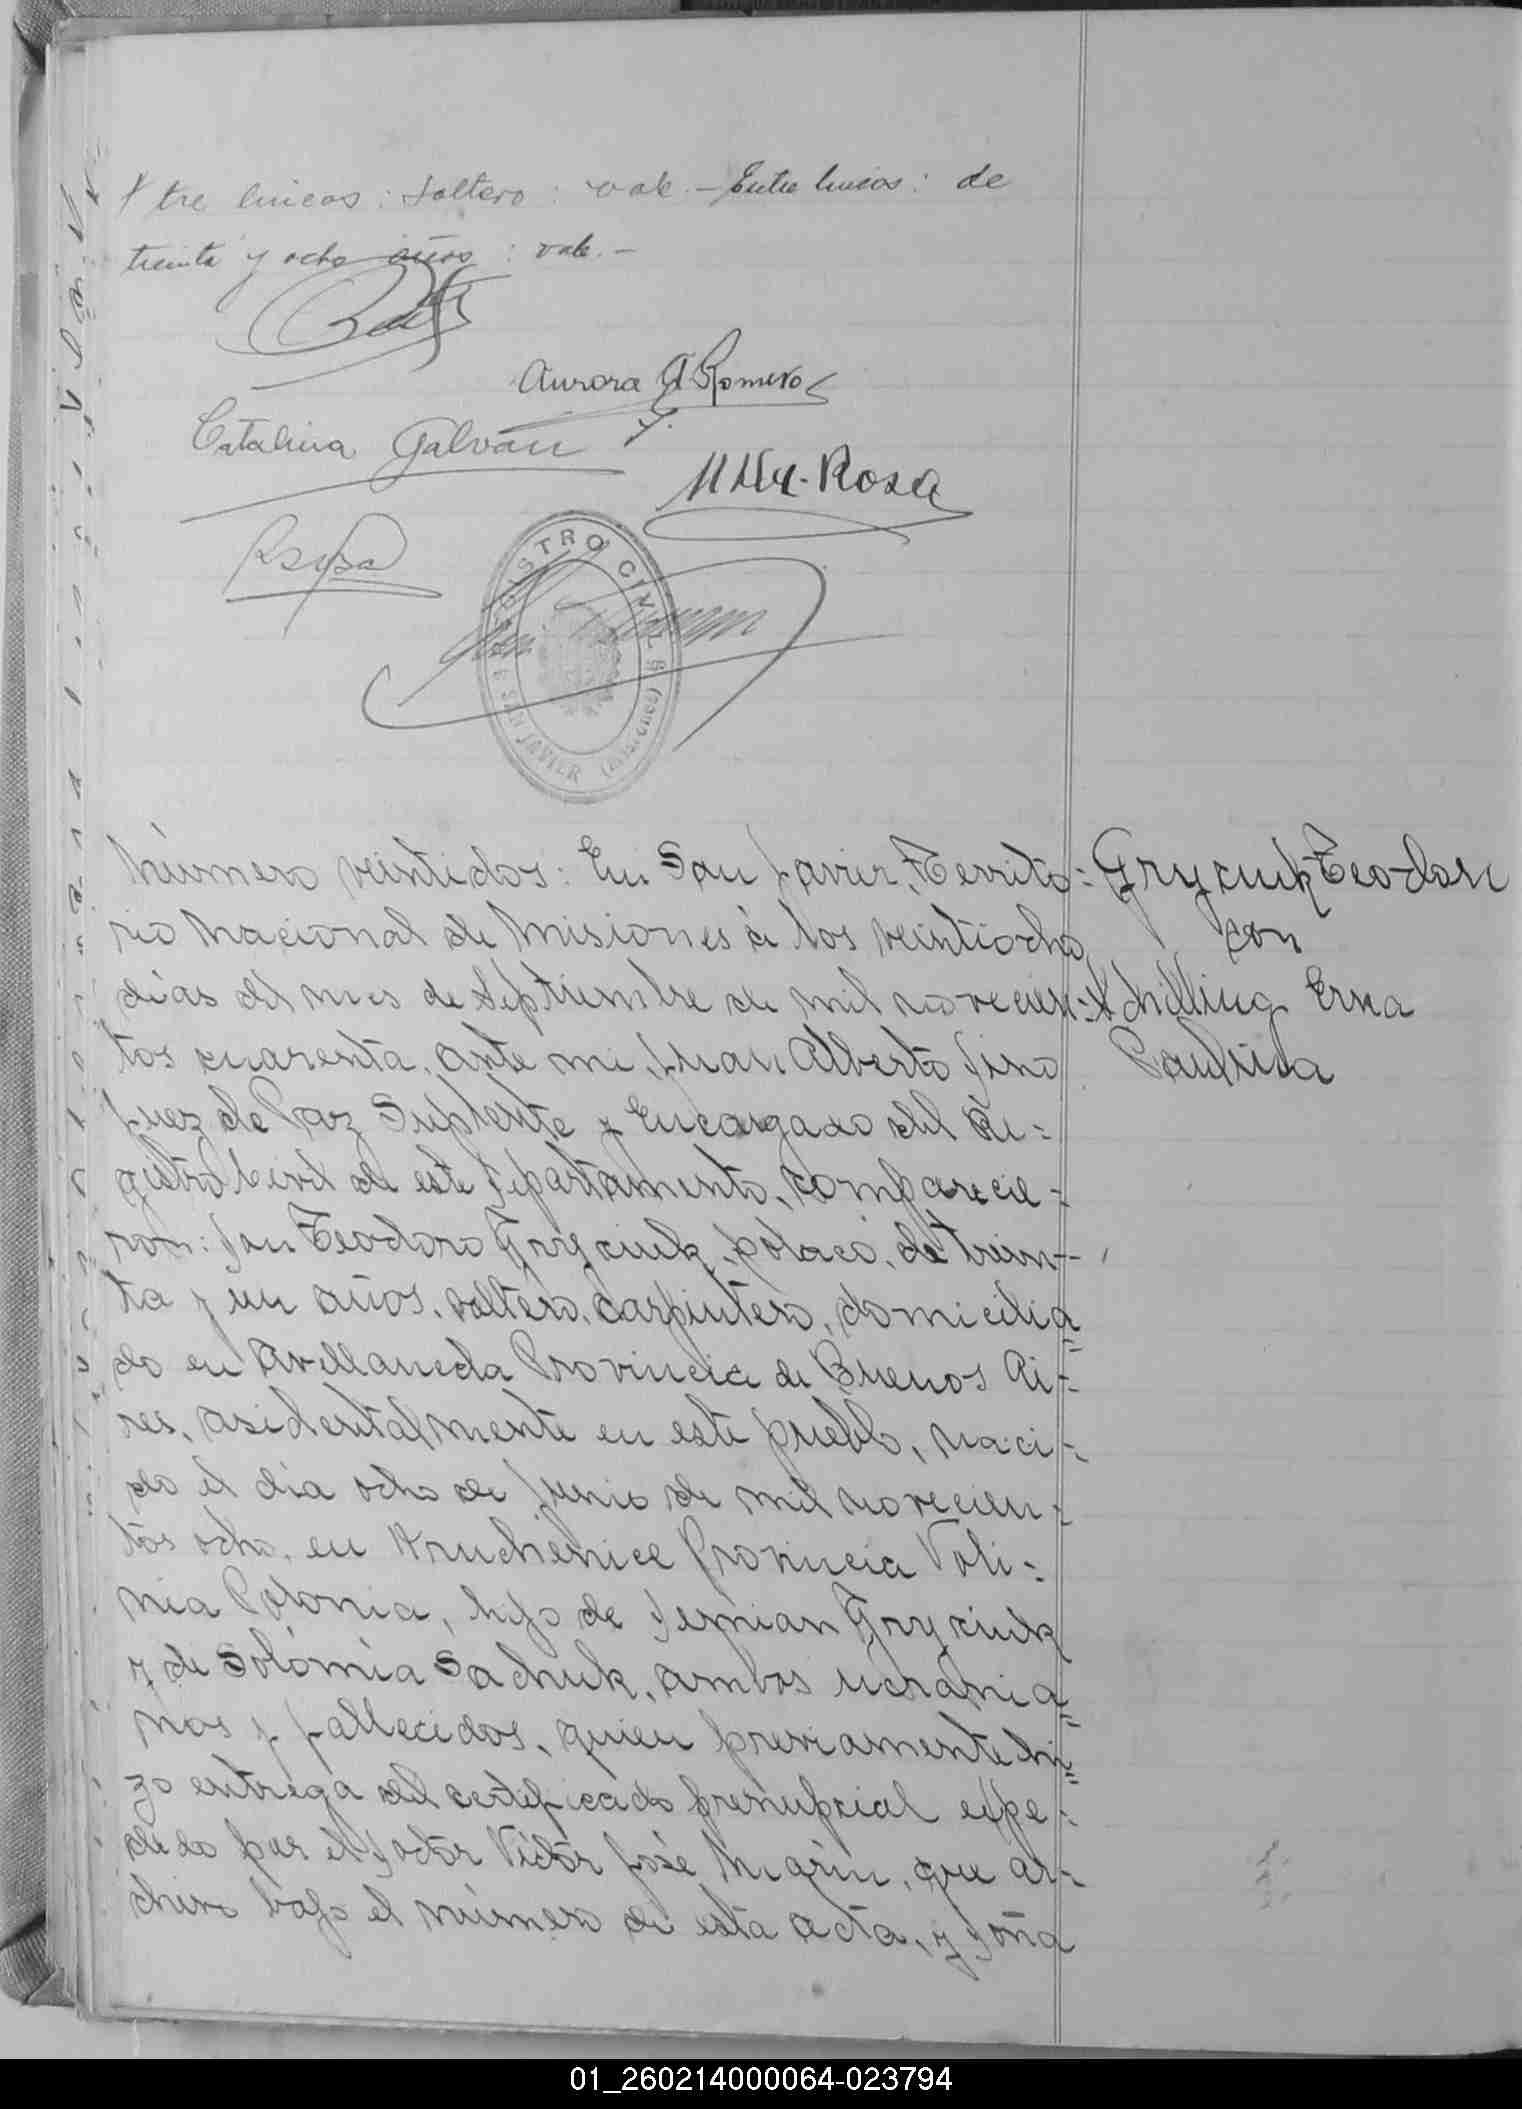 tre lineas: soltero: vale.- Entre lineas: de
treinta y ocho años: vale.-
Aurora A. Romero
Catalina Galván
Rosa
REGISTRO CIVIL
SAN JAVIER (Misiones)
Número veintidos: En San Javier, Territo=
rio Nacional de Misiones á los veintiocho
dias del mes de Septiembre de mil novecien=
tos cuarenta, ante mi, Juan Alberto Fino
Juez de Paz Suplente y Encargado del Re=
gistro Civil de este Departamento, comparecie=
ron: Don Teodoro Gryciuk, polaco, de trein=
ta y un años, soltero, carpintero, domicilia=
do en Avellaneda Provincia de Buenos Ai=
res, asidentalmente en este pueblo, naci=
do el dia ocho de Junio de mil novecien=
tos ocho, en Kruchenice Provincia Voli=
nia Polonia, hijo de Demian Gryciuk
y de Solómia Sachuk, ambos ucránia=
nos y fallecidos, quien previamente hi=
zo entrega del certificado prenupcial espe=
dido por el Doctor Victor José Marin, que ar=
chivo bajo el número de esta acta, y Doña
Gryciuk Teodoro
con
Schilling Erna
Paulina
01_260214000064-023794